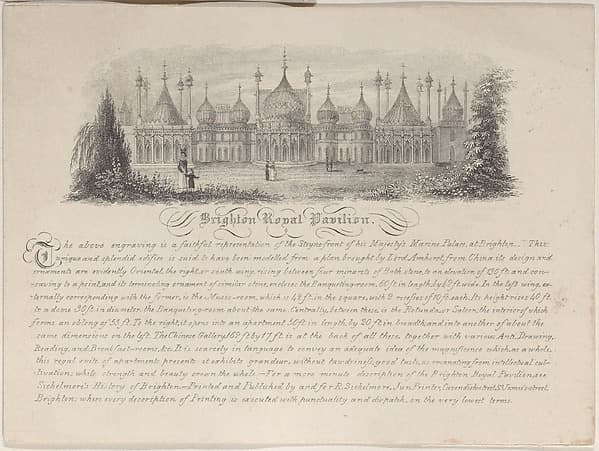 Brighton Royal Pavilion.
The above engraving is a faithful representation of the Steyne front of his Majesty's Marine Palace, at Brighton. "This
unique and splendid edifice is said to have been modelled from a plan brought by Lord Amherst, from China, its design and
ornaments are evidently Oriental, the right, or south wing, rising between four minarets of Bath stone, to an elevation of 130 ft. and con-
verging to a point, and its terminating ornament of similar stone, encloses the Banqueting-room, 60 ft. in length, by 42 ft. wide. In the left wing, ex-
ternally corresponding with the former, is the Music-room, which is 42 ft. in the square, with 2 recesses of 10 ft. each. Its height rises 40 ft.
to a dome 30 ft. in diameter, the Banqueting-room about the same. Centrally, between these, is the Rotunda, or Saloon, the interior of which
forms an oblong of 55 ft. To the right, it opens into an apartment 50 ft. in length, by 20 ft. in breadth, and into another of about the
same dimensions on the left. The Chinese Gallery, 162 ft. by 17 ft. is at the back of all these, together with various Anti, Drawing,
Reading, and Breakfast-rooms, &c. It is scarcely in language to convey an adequate idea of the magnificence which, as a whole,
this regal suite of apartments presents: it exhibits grandeur, without tawdriness; good taste, as emanating from intellectual cul-
tivation; while strength and beauty crown the whole.—For a more minute discription of the Brighton Royal Pavilion, see
Sickelmore's History of Brighton.—Printed and Published by and for R. Sickelmore, Jun. Printer, Cavendish-street, St. James's-street,
Brighton; where every description of Printing is executed with punctuality and dispatch, on the very lowest terms.